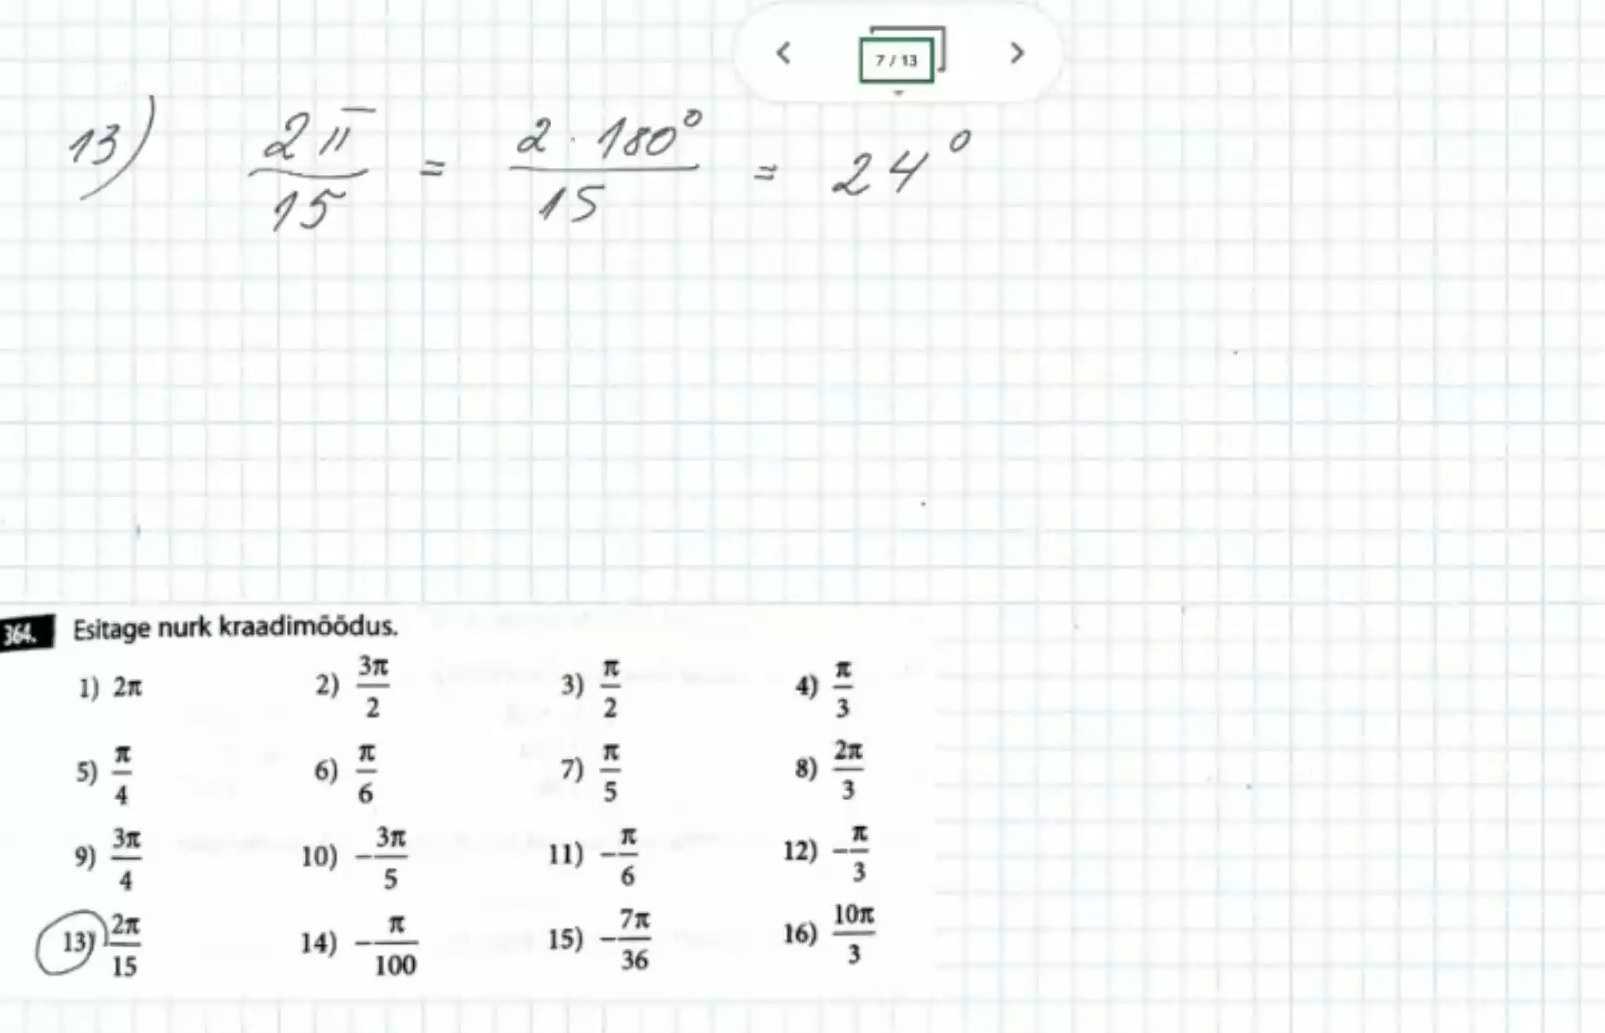 7 / 13
13) 2π/15 = 2 · 180°/15 = 24°
364. Esitage nurk kraadimõõdus.
1) 2π 2) 3π/2 3) π/2 4) π/3
5) π/4 6) π/6 7) π/5 8) 2π/3
9) 3π/4 10) -3π/5 11) -π/6 12) -π/3
13) 2π/15 14) -π/100 15) -7π/36 16) 10π/3